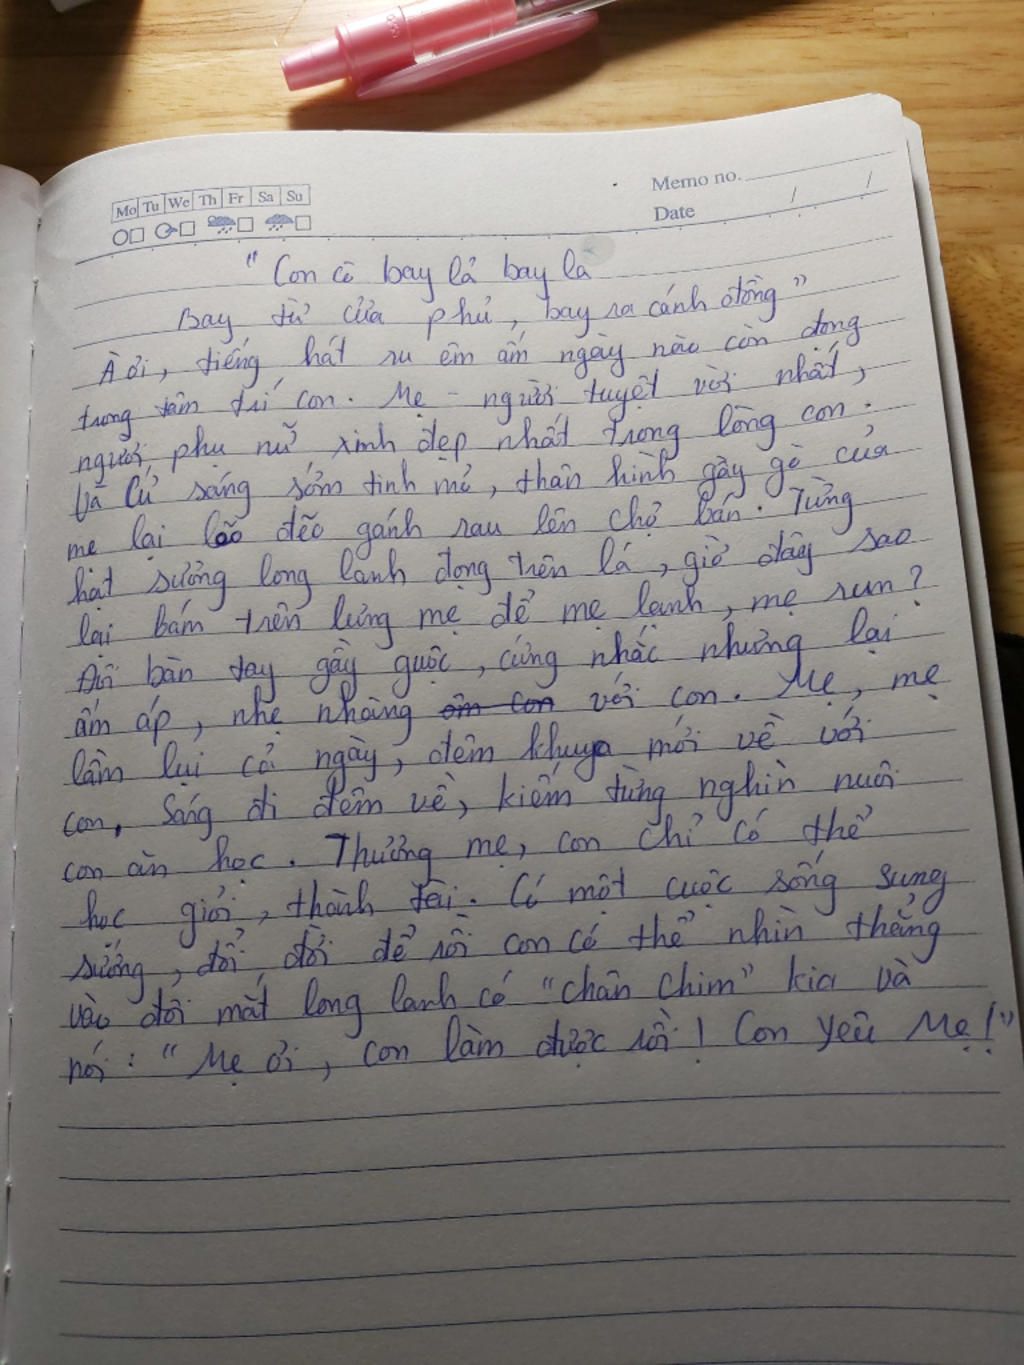 Mo Tu We Th Fr Sa Su
Memo no.
Date / /
" Con cò bay lả bay la
Bay từ cửa phủ, bay ra cánh đồng"
À ơi, tiếng hát ru êm ấm ngày nào còn đọng
trong tâm trí con. Mẹ - người tuyệt vời nhất,
người phụ nữ xinh đẹp nhất trong lòng con.
Và cứ sáng sớm tinh mơ, thân hình gầy gò của
mẹ lại đẽo gánh rau lên chợ bán. Từng
hạt sương long lanh đọng trên lá, giờ đây sao
lại bám trên lưng mẹ để mẹ lạnh, mẹ run?
Đôi bàn tay gầy guộc, cứng nhắc nhưng lại
ấm áp, nhẹ nhàng ôm con với con. Mẹ, mẹ
lầm lụi cả ngày, đêm khuya mới về với
con. Sáng đi đêm về, kiếm từng nghìn nuôi
con ăn học. Thương mẹ, con chỉ có thể
học giỏi, thành tài. Có một cuộc sống sung
sướng, đổi đời để rồi con có thể nhìn thẳng
vào đôi mắt long lanh có "chân chim" kia và
nói: "Mẹ ơi, con làm được rồi! Con yêu Mẹ!"